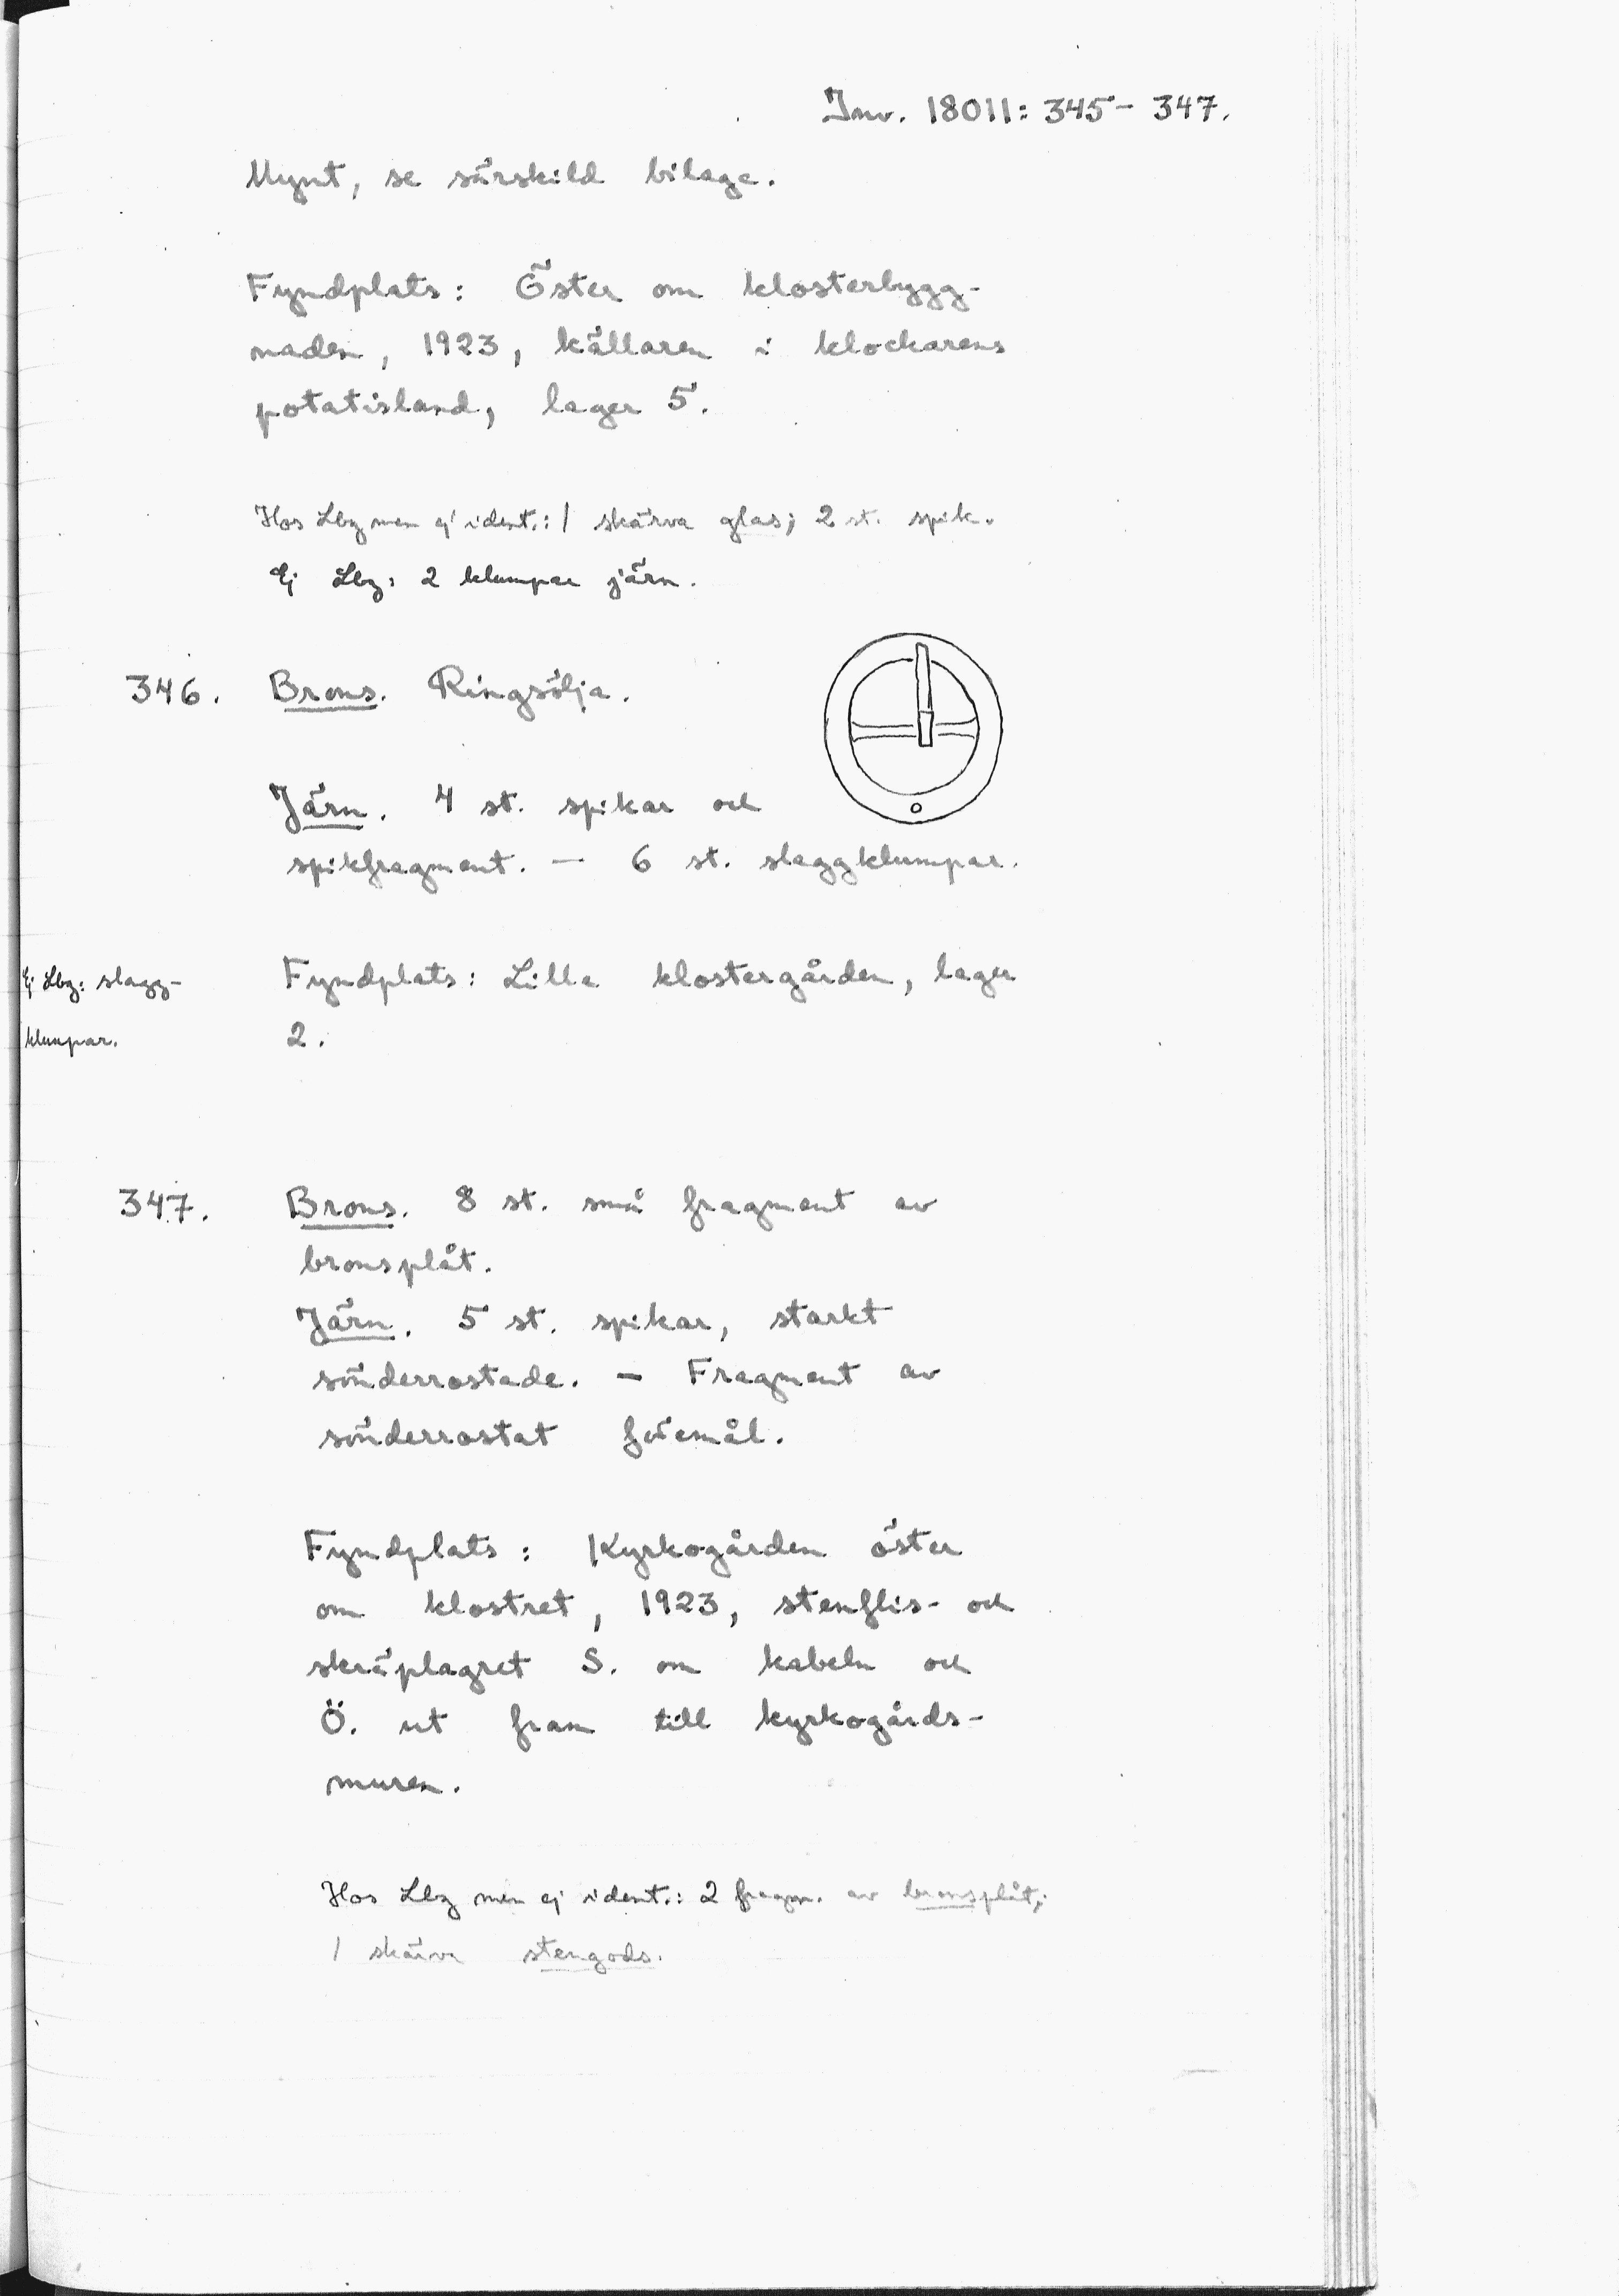 Inv. 18011: 345- 347.
Mynt, se särskild bilaga.
Fyndplats: Öster om klosterbygg-
naden, 1923, källaren i klockarens
potatisland, lager 5.
Hos Lbg men ej ident.: 1 skärva glas; 2 st. spik.
Ej Lbg: 2 klumpar järn.
346. Brons. Ringsölja.
Järn. 4 st. spikar och
spikfragment. — 6 st. slaggklumpar.
Ej Lbg: slagg-
klumpar.
Fyndplats: Lilla klostergården, lager
2.
347. Brons. 8 st. små fragment av
bronsplåt.
Järn. 5 st. spikar, starkt
sönderrostade. - Fragment av
sönderrostat föremål.
Fyndplats: Kyrkogården öster
om klostret, 1923, stenflis- och
skräplagret S. om kabeln och
Ö. ut fram till kyrkogårds-
muren.
Hos Lbg men ej ident.: 2 fragm. av bronsplåt;
1 skärva stengods.